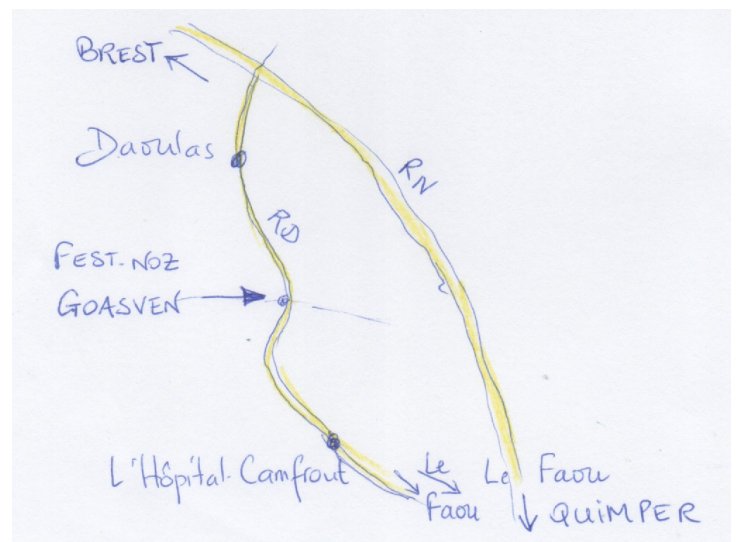 BREST
Daoulas
RN
RD
FEST-NOZ
GOASVEN
L'Hôpital-Camfrout
Le
Faou
Le Faou
QUIMPER